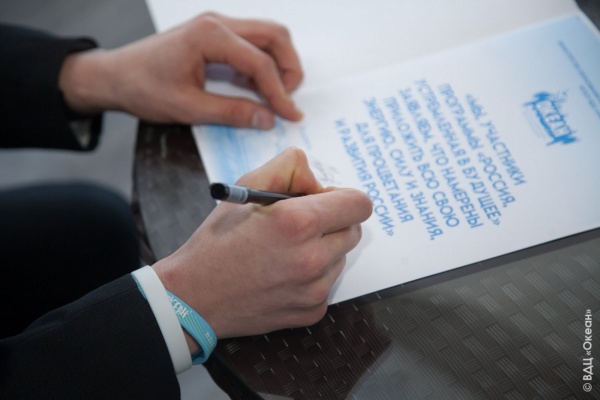 «МЫ, УЧАСТНИКИ
ПРОГРАММЫ «РОССИЯ,
УСТРЕМЛЕННАЯ В БУДУЩЕЕ»
ЗАЯВЛЯЕМ, ЧТО НАМЕРЕНЫ
ПРИЛОЖИТЬ ВСЮ СВОЮ
ЭНЕРГИЮ, СИЛУ И ЗНАНИЯ,
ДЛЯ ПРОЦВЕТАНИЯ
И РАЗВИТИЯ РОССИИ»
© ВДЦ «Океан»